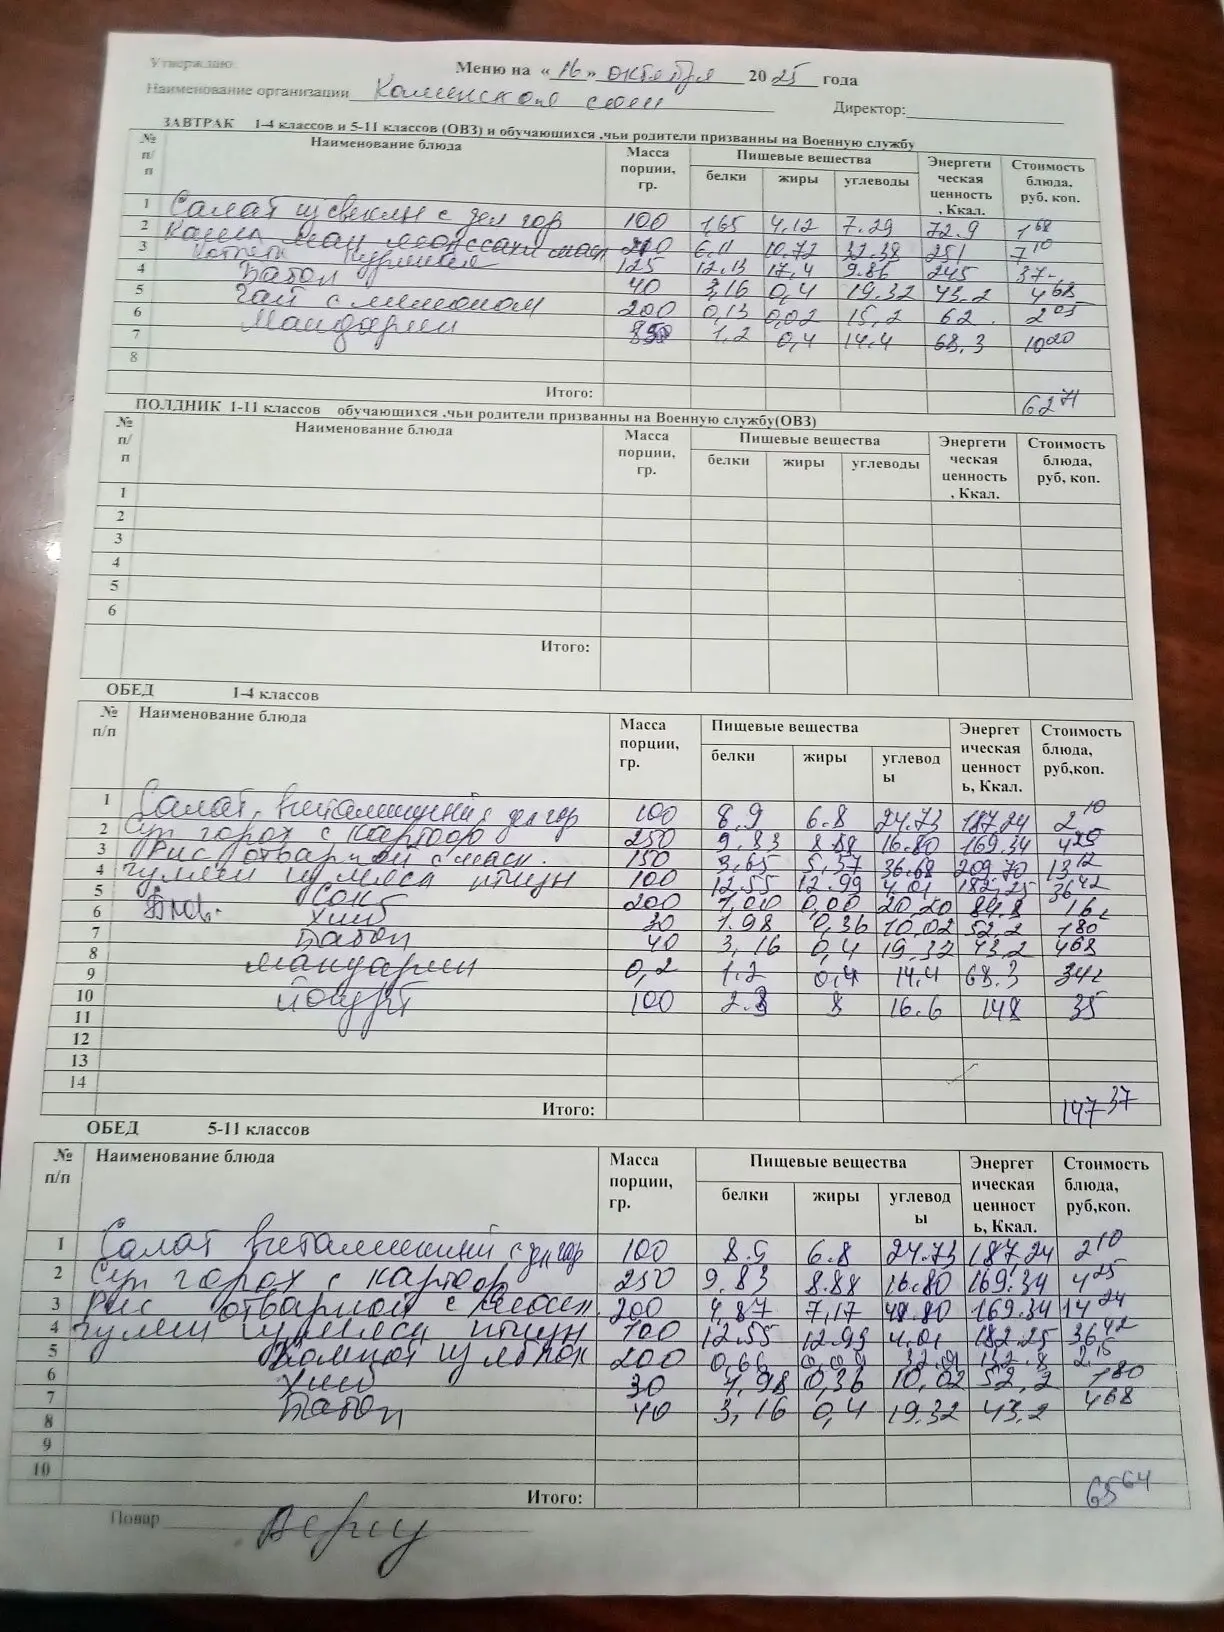 Утверждаю
Меню на «16» октября 2025 года
Наименование организации Каменская сош
Директор:
ЗАВТРАК 1-4 классов и 5-11 классов (ОВЗ) и обучающихся ,чьи родители призванны на Военную службу
№ п/п Наименование блюда Масса порции, гр. Пищевые вещества Энергетическая ценность, Ккал. Стоимость блюда, руб. коп.
белки жиры углеводы
1 Салат из свеклы с зел гор 100 1,65 4,12 7.29 72.9 1 68
2 Каша ман молоссаки масл 6,11 10,72 32.38 251 7 10
3 Котлета куриная 125 12.13 17,4 9.86 245 37-
4 Батон 40 3,16 0,4 19.32 43.2 4 68
5 Чай с лимоном 200 0,13 0,02 15,2 62 2 05
6 Мандарин 1,2 0,4 14.4 68,3 10 20
7
8
Итого: 62 71
ПОЛДНИК 1-11 классов обучающихся ,чьи родители призванны на Военную службу(ОВЗ)
№ п/п Наименование блюда Масса порции, гр. Пищевые вещества Энергетическая ценность, Ккал. Стоимость блюда, руб, коп.
белки жиры углеводы
1
2
3
4
5
6
Итого:
ОБЕД 1-4 классов
№ п/п Наименование блюда Масса порции, гр. Пищевые вещества Энергетическая ценность, Ккал. Стоимость блюда, руб,коп.
белки жиры углеводы
1 Салат витаминный с зел гор 100 8.9 6.8 24.73 187.24 2 10
2 Суп горох с картоф 250 9.83 8.88 16.80 169.34 4 25
3 Рис отварной с масл. 150 3,65 5,37 36.68 209.70 13 12
4 гуляш из мяса птицы 100 12.55 12.99 4,01 182,25 36 42
5 Сок 200 1,00 0,00 20,20 84.8 16
6 Хлеб 30 1.98 0,36 10,02 52,2 1 80
7 Батон 40 3,16 0,4 19,32 43,2 4 68
8 Мандарин 0,2 1,2 0,4 14,4 68.3 34
9 Йогурт 100 2.8 8 16.6 148 35
10
11
12
13
14
Итого: 147 37
ОБЕД 5-11 классов
№ п/п Наименование блюда Масса порции, гр. Пищевые вещества Энергетическая ценность, Ккал. Стоимость блюда, руб,коп.
белки жиры углеводы
1 Салат витаминный с зел гор 100 8.9 6.8 24.73 187.24 2 10
2 Суп горох с картоф 250 9.83 8.88 16.80 169.34 4 25
3 Рис отварной с масл. 200 4,87 7,17 48.80 169.34 14 24
4 гуляш из мяса птицы 100 12.55 12.99 4,01 182.25 36 42
5 Компот из яблок 200 0,66 0,09 132.8 2,15
6 Хлеб 30 1,98 0,36 10,02 52,2 1 80
7 Батон 40 3,16 0,4 19.32 43,2 4 68
8
9
10
Итого: 65 64
Повар